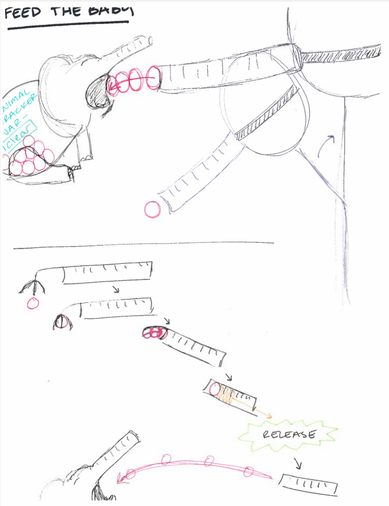 FEED THE BABY
ANIMAL
CRACKER
JAR -
(clear)
RELEASE